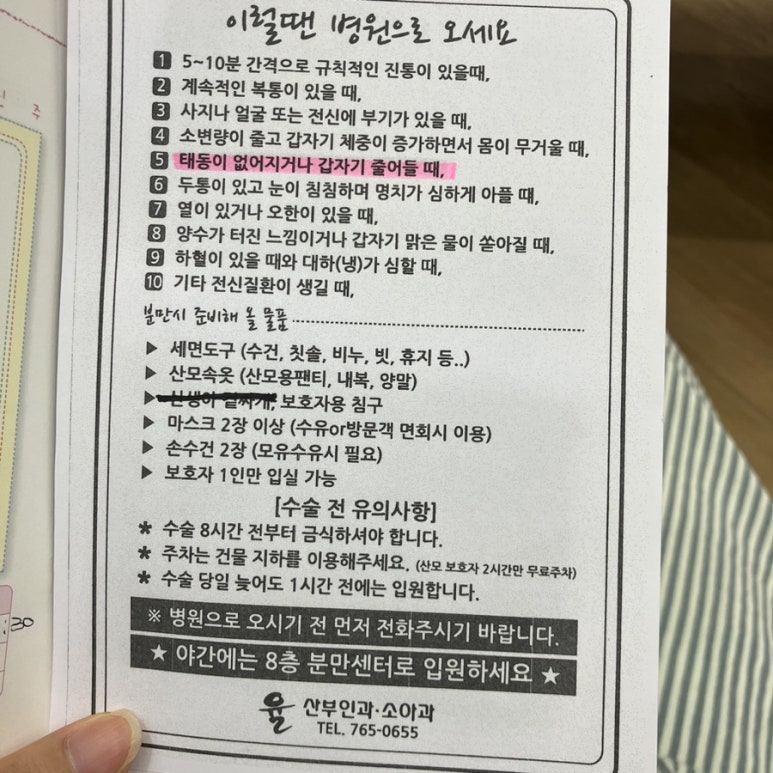 이럴땐 병원으로 오세요
1 5~10분 간격으로 규칙적인 진통이 있을때,
2 계속적인 복통이 있을 때,
3 사지나 얼굴 또는 전신에 부기가 있을 때,
4 소변량이 줄고 갑자기 체중이 증가하면서 몸이 무거울 때,
5 태동이 없어지거나 갑자기 줄어들 때,
6 두통이 있고 눈이 침침하며 명치가 심하게 아플 때,
7 열이 있거나 오한이 있을 때,
8 양수가 터진 느낌이거나 갑자기 맑은 물이 쏟아질 때,
9 하혈이 있을 때와 대하(냉)가 심할 때,
10 기타 전신질환이 생길 때,
분만시 준비해 올 물품
▶ 세면도구 (수건, 칫솔, 비누, 빗, 휴지 등..)
▶ 산모속옷 (산모용팬티, 내복, 양말)
▶ 보호자용 침구
▶ 마스크 2장 이상 (수유or방문객 면회시 이용)
▶ 손수건 2장 (모유수유시 필요)
▶ 보호자 1인만 입실 가능
[수술 전 유의사항]
* 수술 8시간 전부터 금식하셔야 합니다.
* 주차는 건물 지하를 이용해주세요. (산모 보호자 2시간만 무료주차)
* 수술 당일 늦어도 1시간 전에는 입원합니다.
※ 병원으로 오시기 전 먼저 전화주시기 바랍니다.
★ 야간에는 8층 분만센터로 입원하세요 ★
율 산부인과·소아과
TEL. 765-0655
주
:30